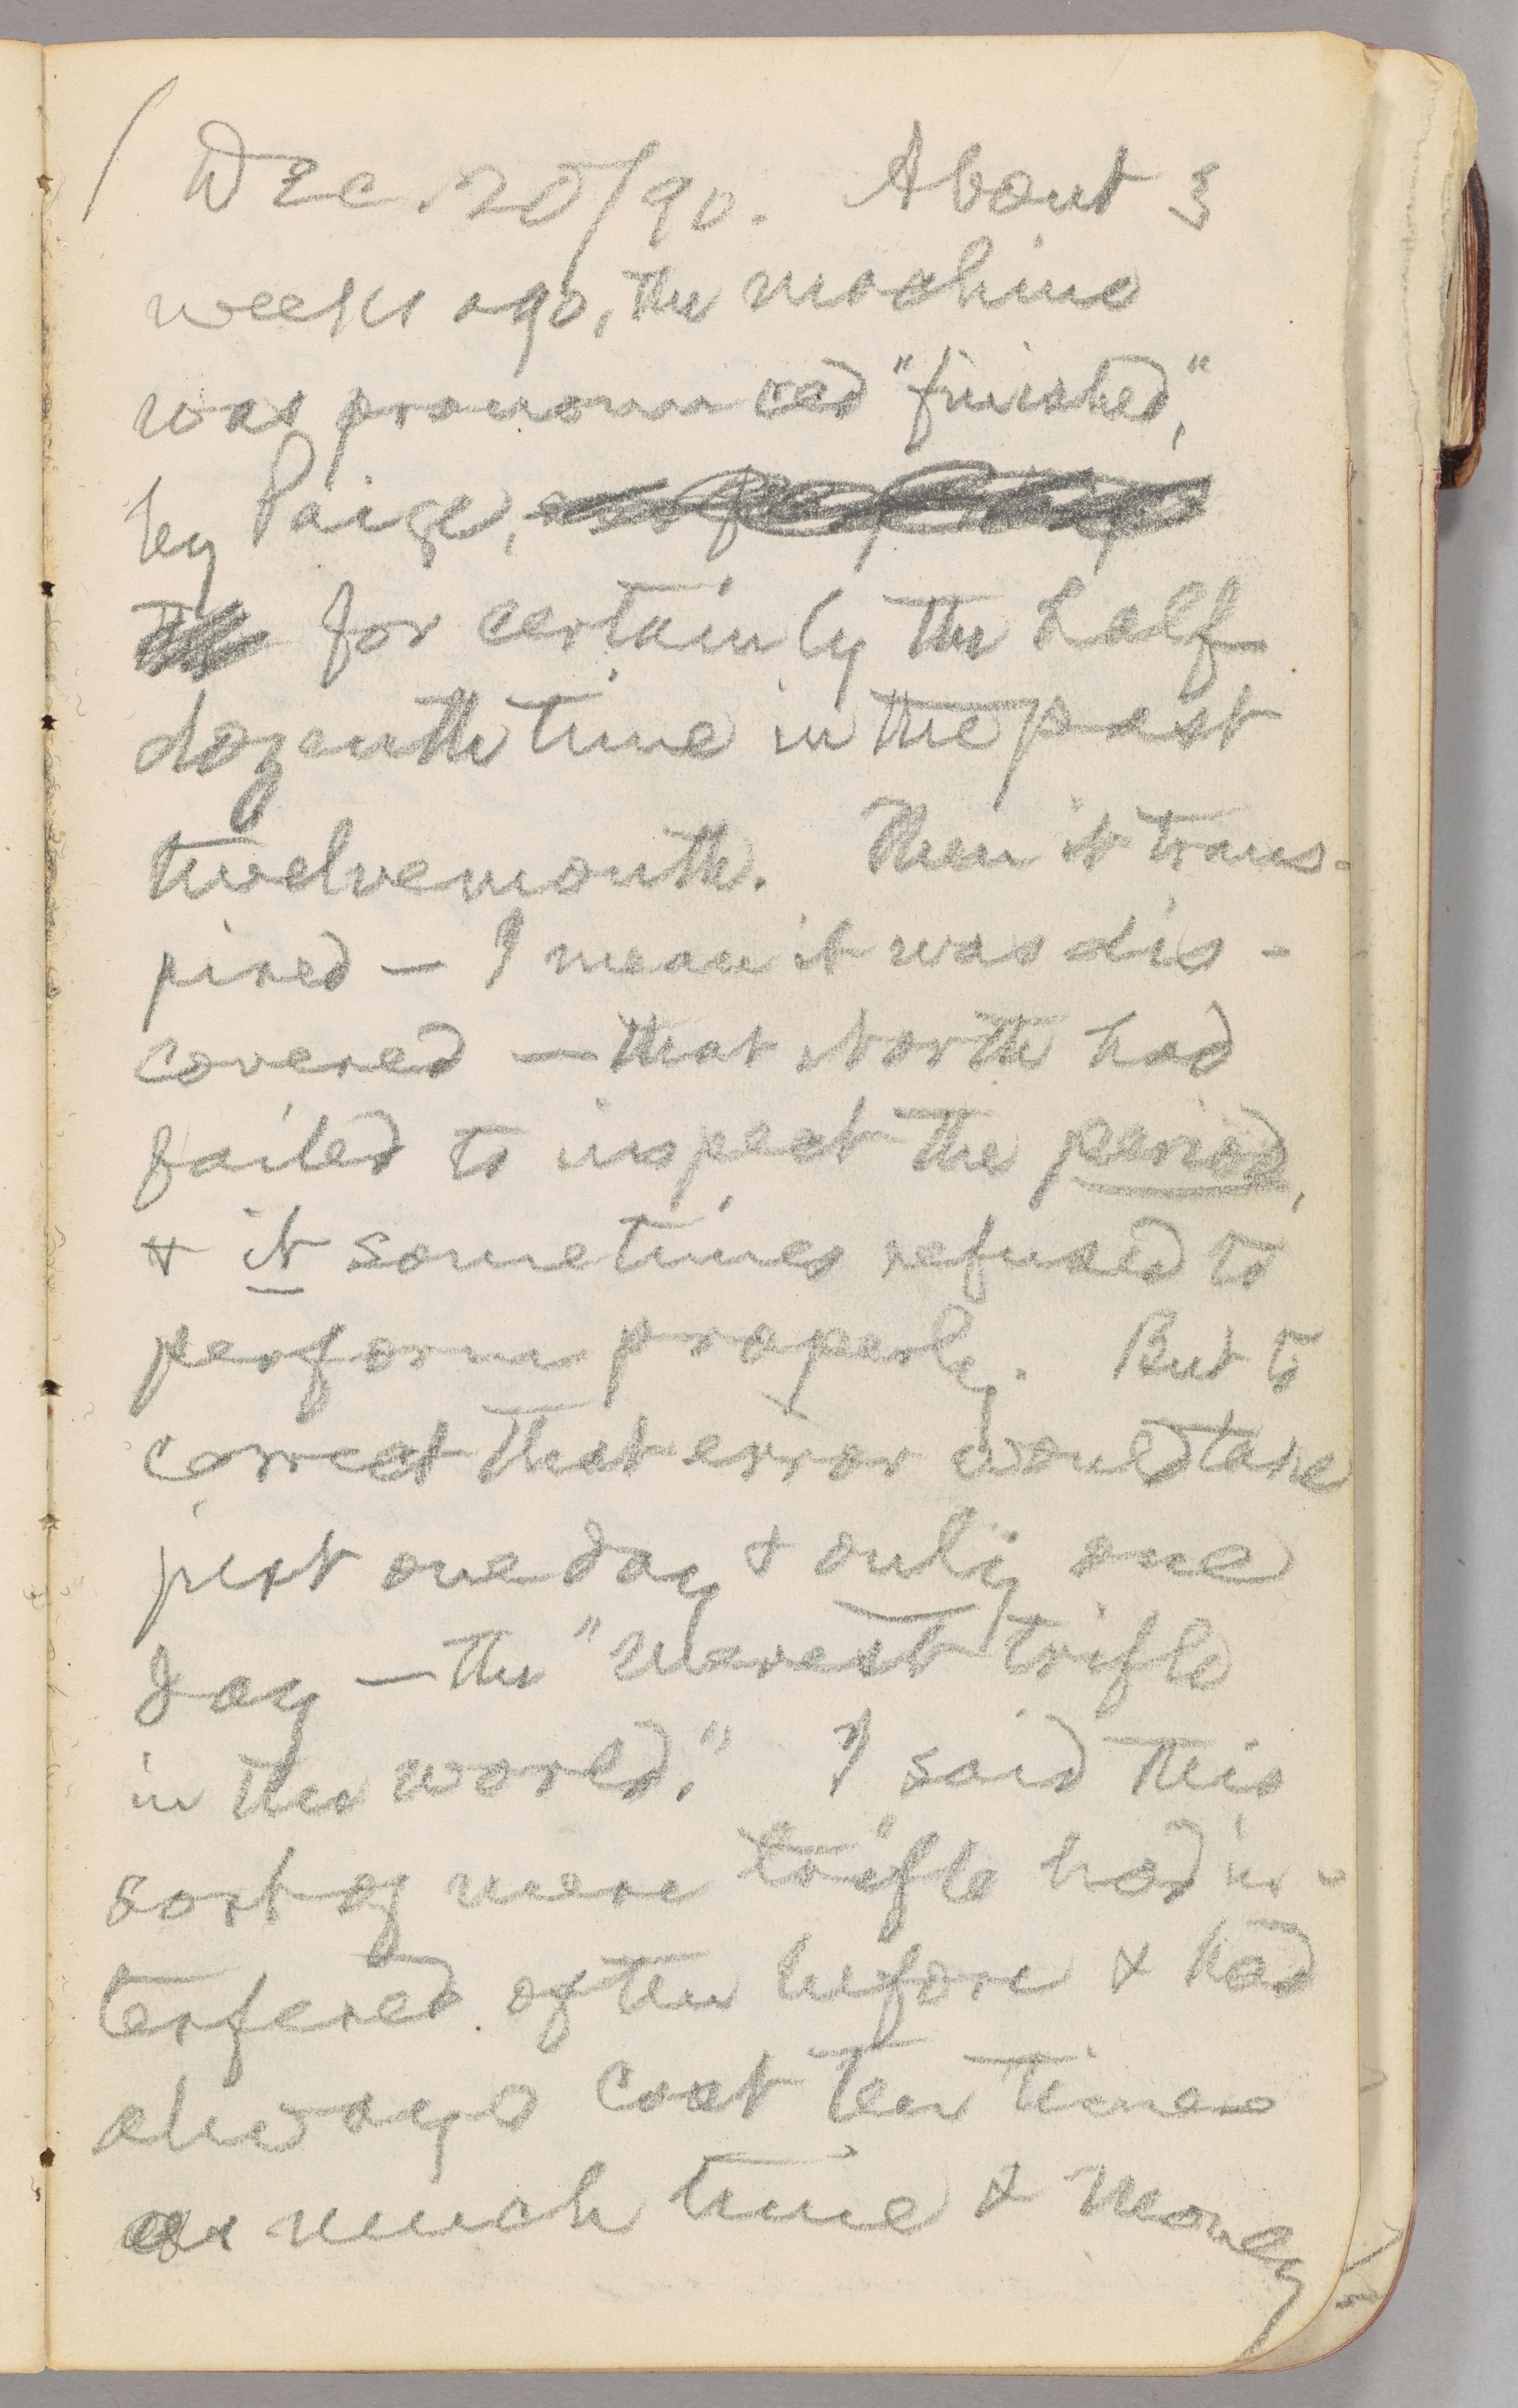 Dec. 20/90. About 3
weeks ago, the machine
was pronounced "finished,"
by Paige,
for certainly the half
dozenth time in the past
twelvemonth. Then it trans-
pired — I mean it was dis-
covered — that North had
failed to inspect the period,
& it sometimes refused to
perform properly. But to
correct that error would take
just one day, & only one
day — the "merest trifle
in the world." I said this
sort of mere trifle had in-
terfered often before & had
always cost ten times
as much time & money